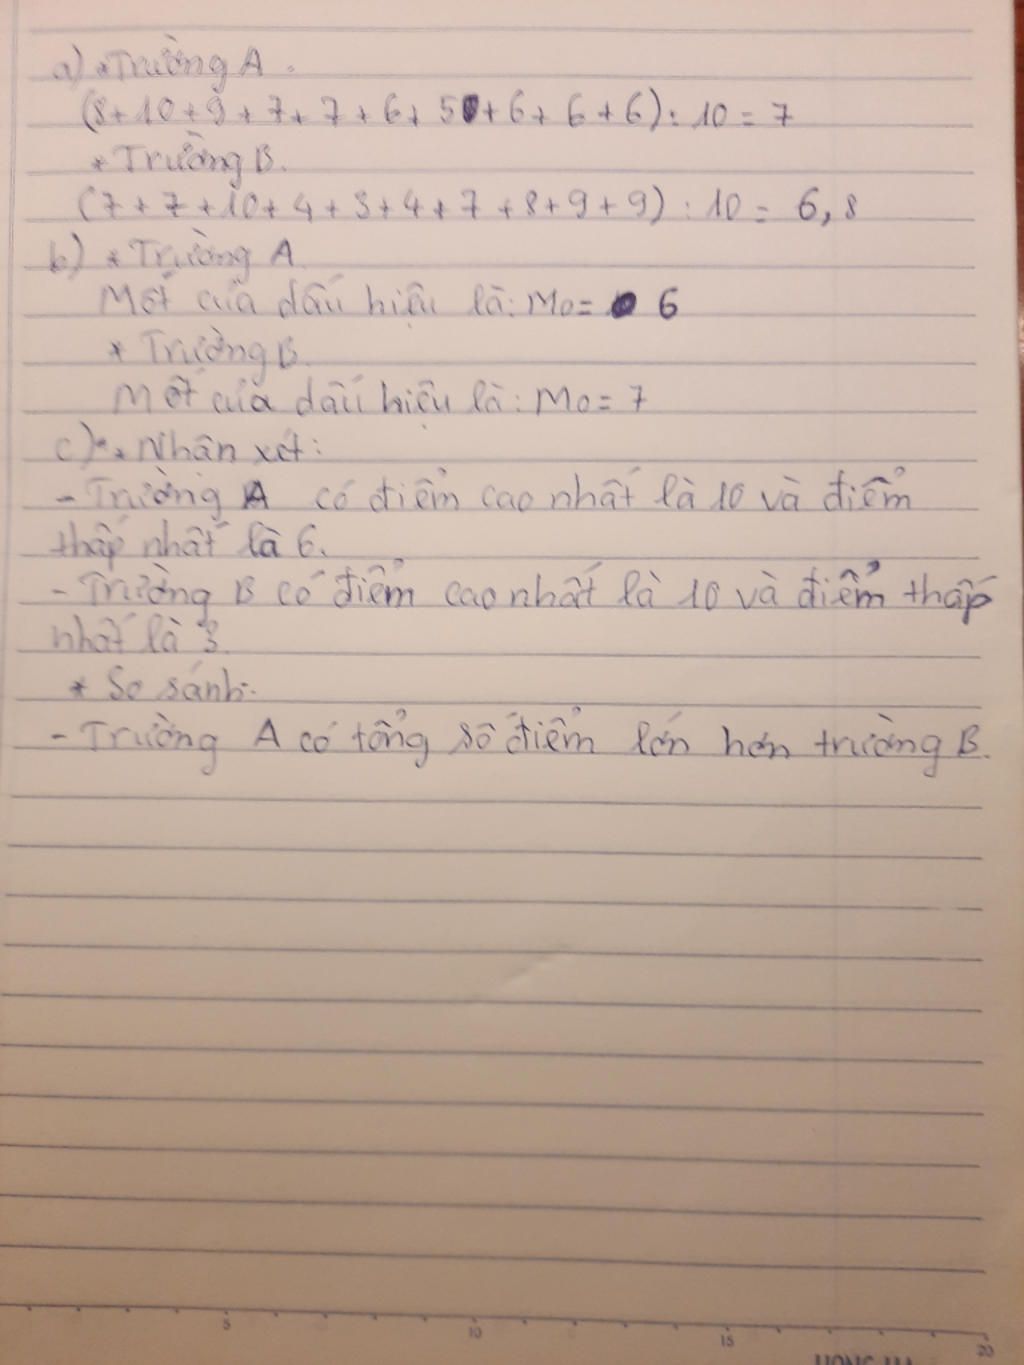 a) * Trường A.
(8+10+9+7+7+6+5+6+6+6) : 10 = 7
* Trường B.
(7+7+10+4+3+4+7+8+9+9) : 10 = 6,8
b) * Trường A
Mốt của dấu hiệu là: Mo= 6
* Trường B.
Mốt của dấu hiệu là: Mo= 7
c) * Nhận xét:
- Trường A có điểm cao nhất là 10 và điểm
thấp nhất là 6.
- Trường B có điểm cao nhất là 10 và điểm thấp
nhất là 3.
* So sánh:
- Trường A có tổng số điểm lớn hơn trường B.
5 10 15 20